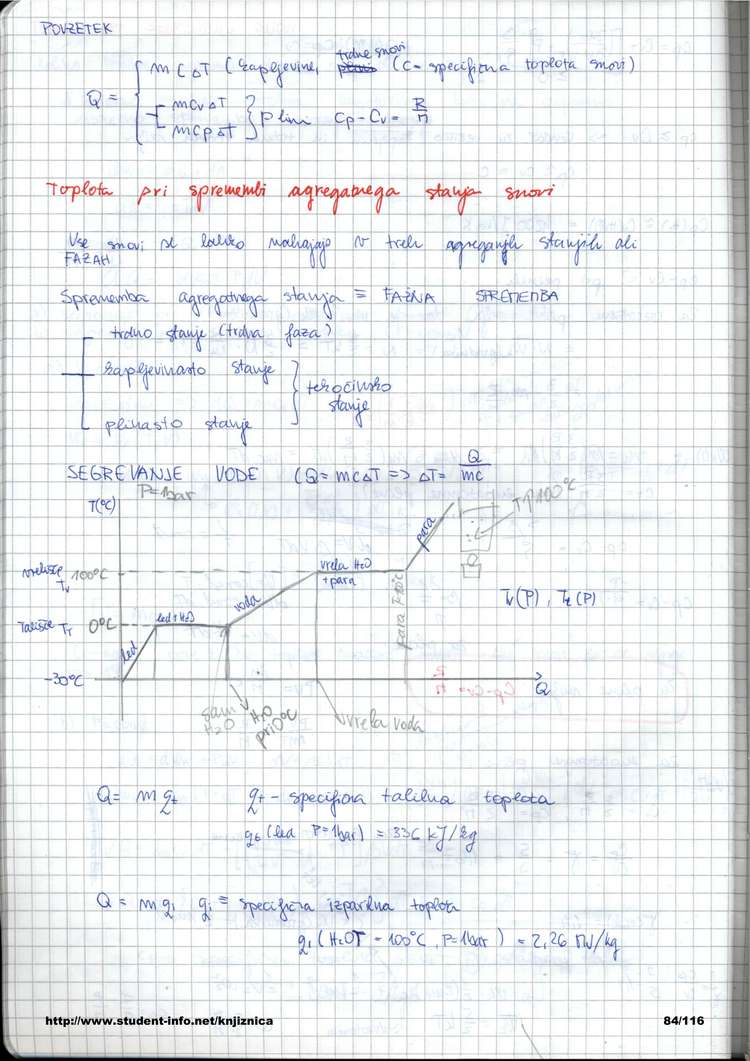 POVZETEK
Q = m c ΔT (kapljevine, trdne snovi (c - specifična toplota snovi)
m cv ΔT
m cp ΔT } plini cp - cv = R/M
Toplota pri spremembi agregatnega stanja snovi
Vse snovi se lahko nahajajo v treh agreganjih stanjih ali
FAZAH
Sprememba agregatnega stanja ≡ FAZNA SPREMEMBA
trdno stanje (trdna faza)
kapljevinasto stanje
tekočinsko
stanje
plinasto stanje
SEGREVANJE VODE (Q = mcΔT => ΔT = Q/mc
P=1bar
T(°C)
TP100°C
para
vrelišče Tv 100°C
vrela H2O
+para
Tv(P), Tt(P)
voda
led+H2O
Tališče TT 0°C
led
para T=100°C
-30°C
Q
cp-cv= R/M
sam H2O
H2O pri 0°C
vrela voda
Q = m qt qt - specifična talilna toplota
qt (led P=1bar) = 336 kJ/kg
Q = m qi qi ≡ specifična izparilna toplota
qi (H2O T = 100°C, P=1bar) = 2,26 MW/kg
http://www.student-info.net/knjiznica
84/116